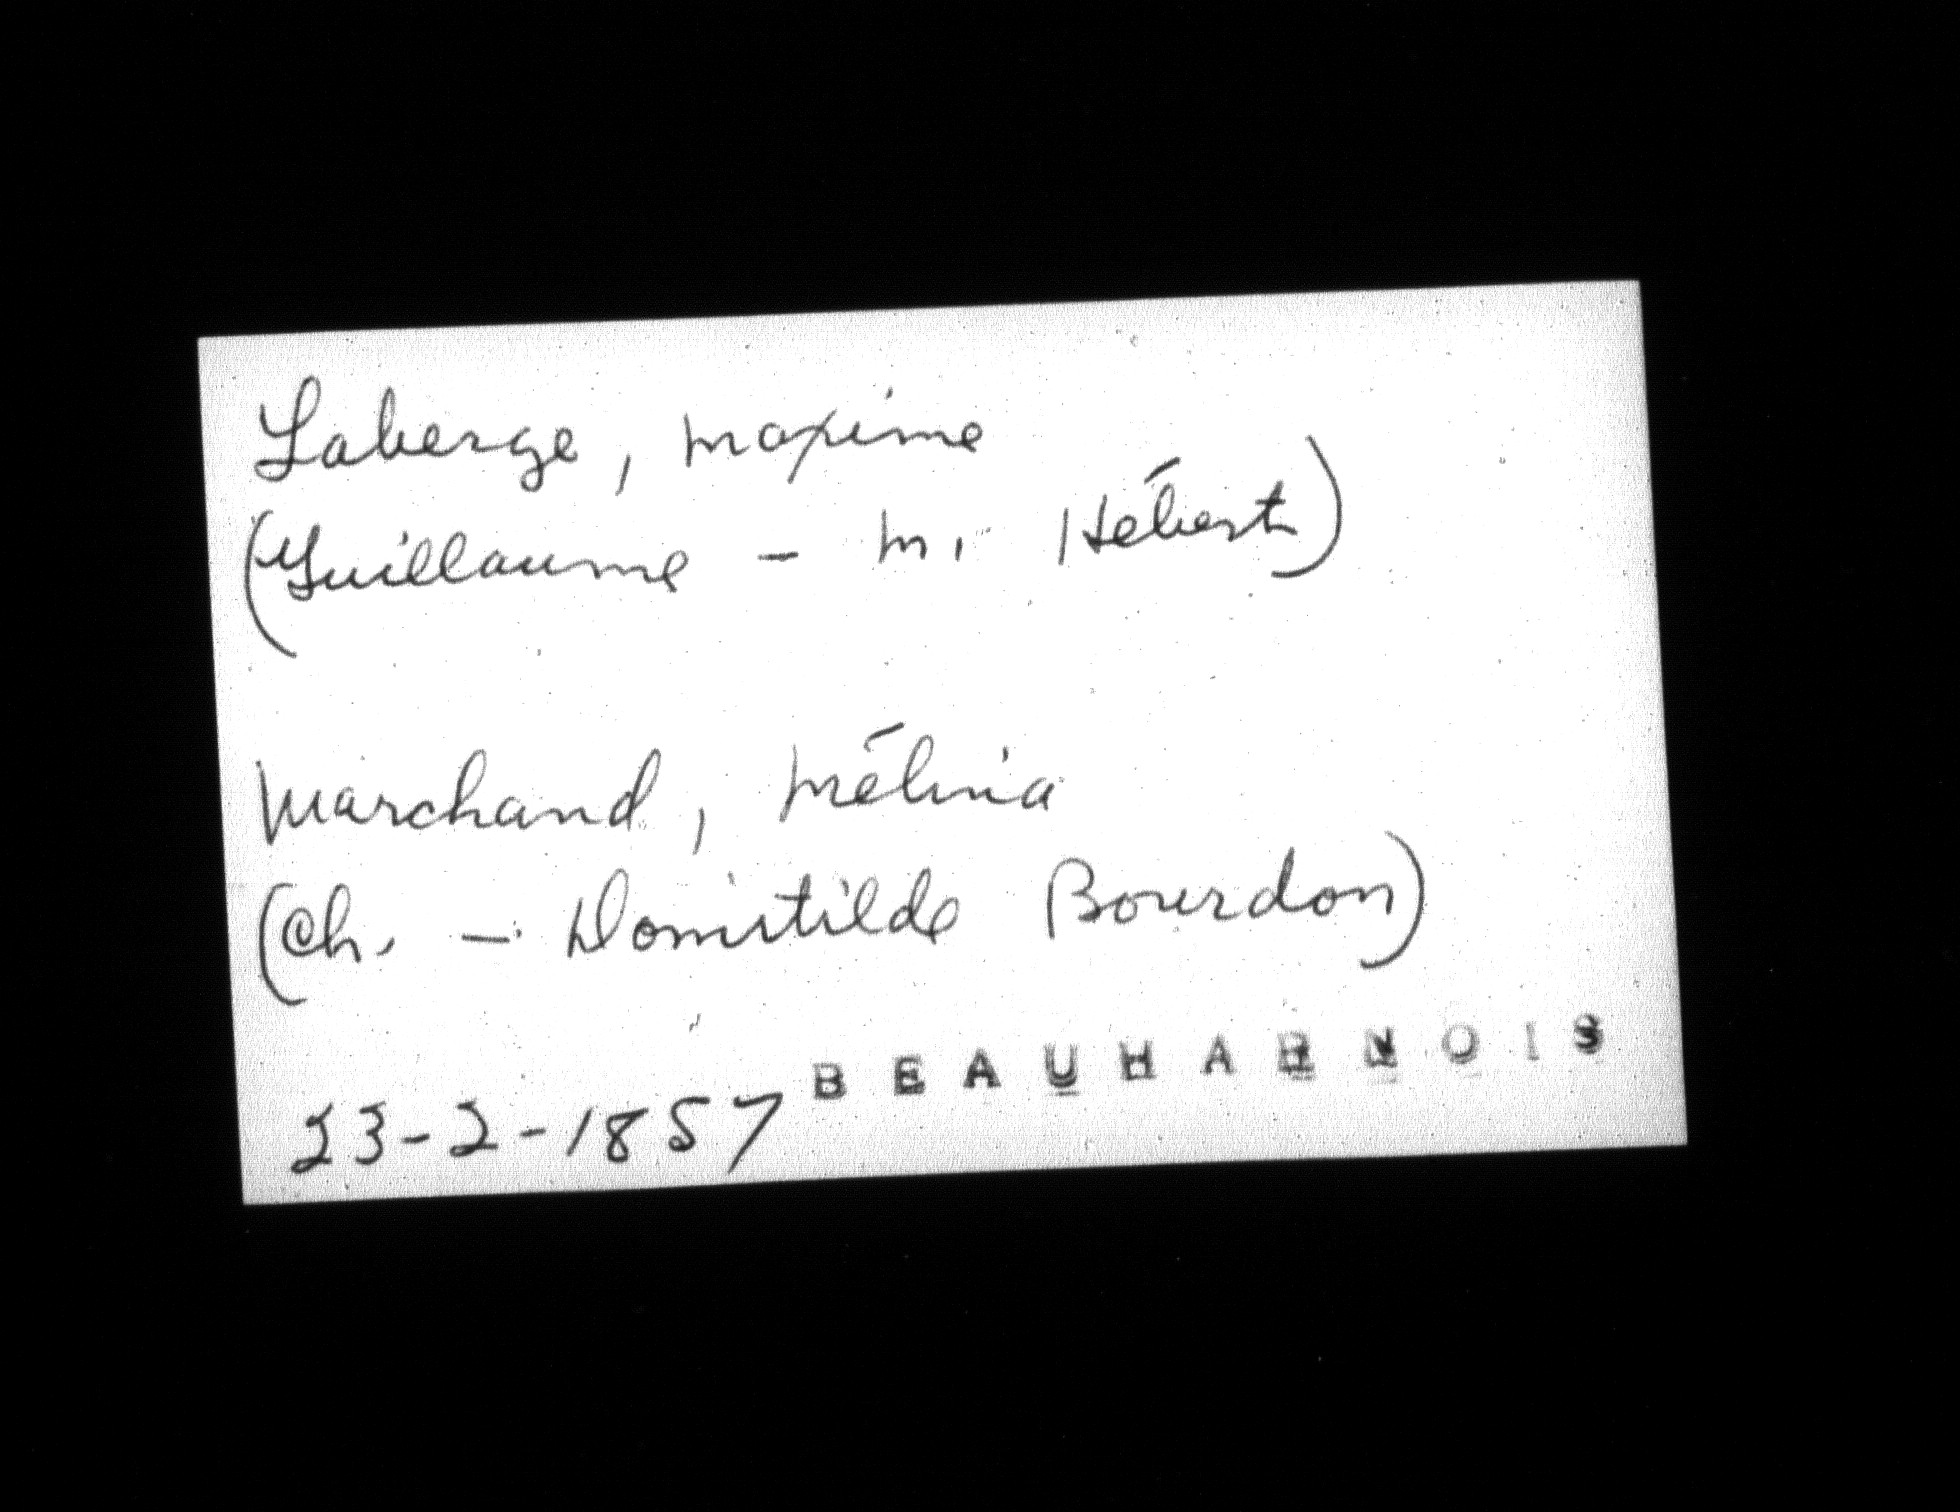 Laberge, Maxime
(Guillaume - M. Hébert)
Marchand, Mélina
(Ch. - Domitilde Bourdon)
23-2-1857 BEAUHARNOIS